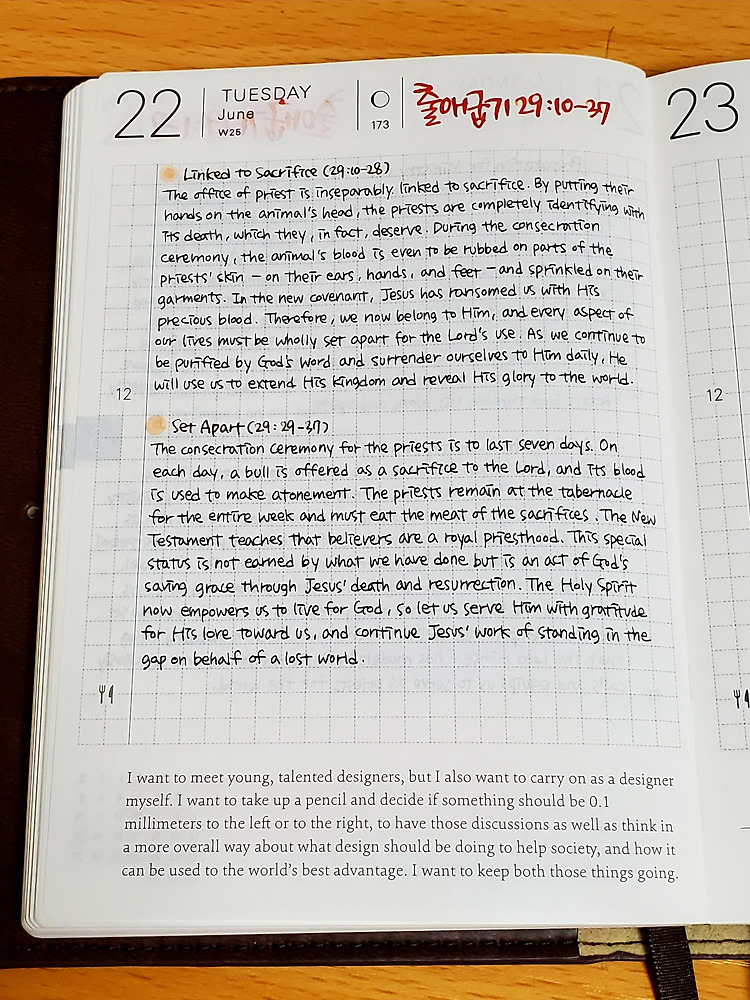 22 TUESDAY June W25 173 출애굽기 29:10-37
23
Linked to Sacrifice (29:10-28)
The office of priest is inseparably linked to sacrifice. By putting their
hands on the animal's head, the priests are completely identifying with
its death, which they, in fact, deserve. During the consecration
ceremony, the animal's blood is even to be rubbed on parts of the
priests' skin — on their ears, hands, and feet — and sprinkled on their
garments. In the new covenant, Jesus has ransomed us with His
precious blood. Therefore, we now belong to Him, and every aspect of
our lives must be wholly set apart for the Lord's use. As we continue to
be purified by God's Word and surrender ourselves to Him daily, He
will use us to extend His Kingdom and reveal His glory to the world.
12
12
Set Apart (29:29-37)
The consecration ceremony for the priests is to last seven days. On
each day, a bull is offered as a sacrifice to the Lord, and its blood
is used to make atonement. The priests remain at the tabernacle
for the entire week and must eat the meat of the sacrifices. The New
Testament teaches that believers are a royal priesthood. This special
status is not earned by what we have done but is an act of God's
saving grace through Jesus' death and resurrection. The Holy Spirit
now empowers us to live for God, so let us serve Him with gratitude
for His love toward us, and continue Jesus' work of standing in the
gap on behalf of a lost world.
I want to meet young, talented designers, but I also want to carry on as a designer
myself. I want to take up a pencil and decide if something should be 0.1
millimeters to the left or to the right, to have those discussions as well as think in
a more overall way about what design should be doing to help society, and how it
can be used to the world's best advantage. I want to keep both those things going.